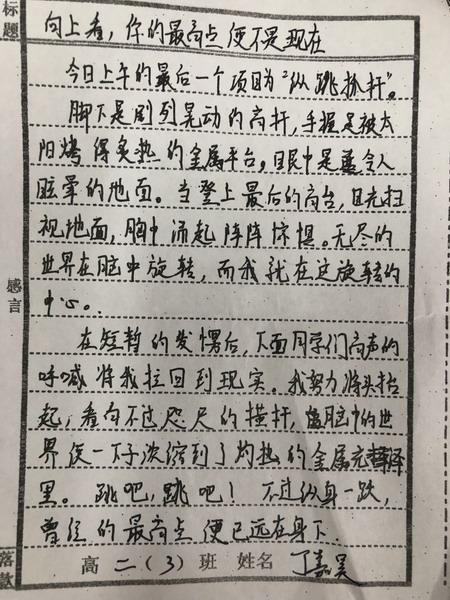 标题
向上看，你的最高点便不是现在
今日上午的最后一个项目为“纵跳抓杆”。
脚下是剧烈晃动的高杆，手握是被太
阳烤得炙热的金属平台，眼中是令人
眩晕的地面。当登上最后的高台，目光扫
视地面，胸中涌起阵阵惊惧。无尽的
世界在脑中旋转，而我就在这旋转的
中心。
感言
在短暂的发愣后，下面同学们高声的
呼喊将我拉回到现实。我努力将头抬
起，看向不过咫尺的横杆，脑中的世
界便一下子浓缩到了灼热的金属
里。跳吧，跳吧！不过纵身一跃，
曾经的最高点便已远在身下.
落款
高二（3）班 姓名 丁嘉昊